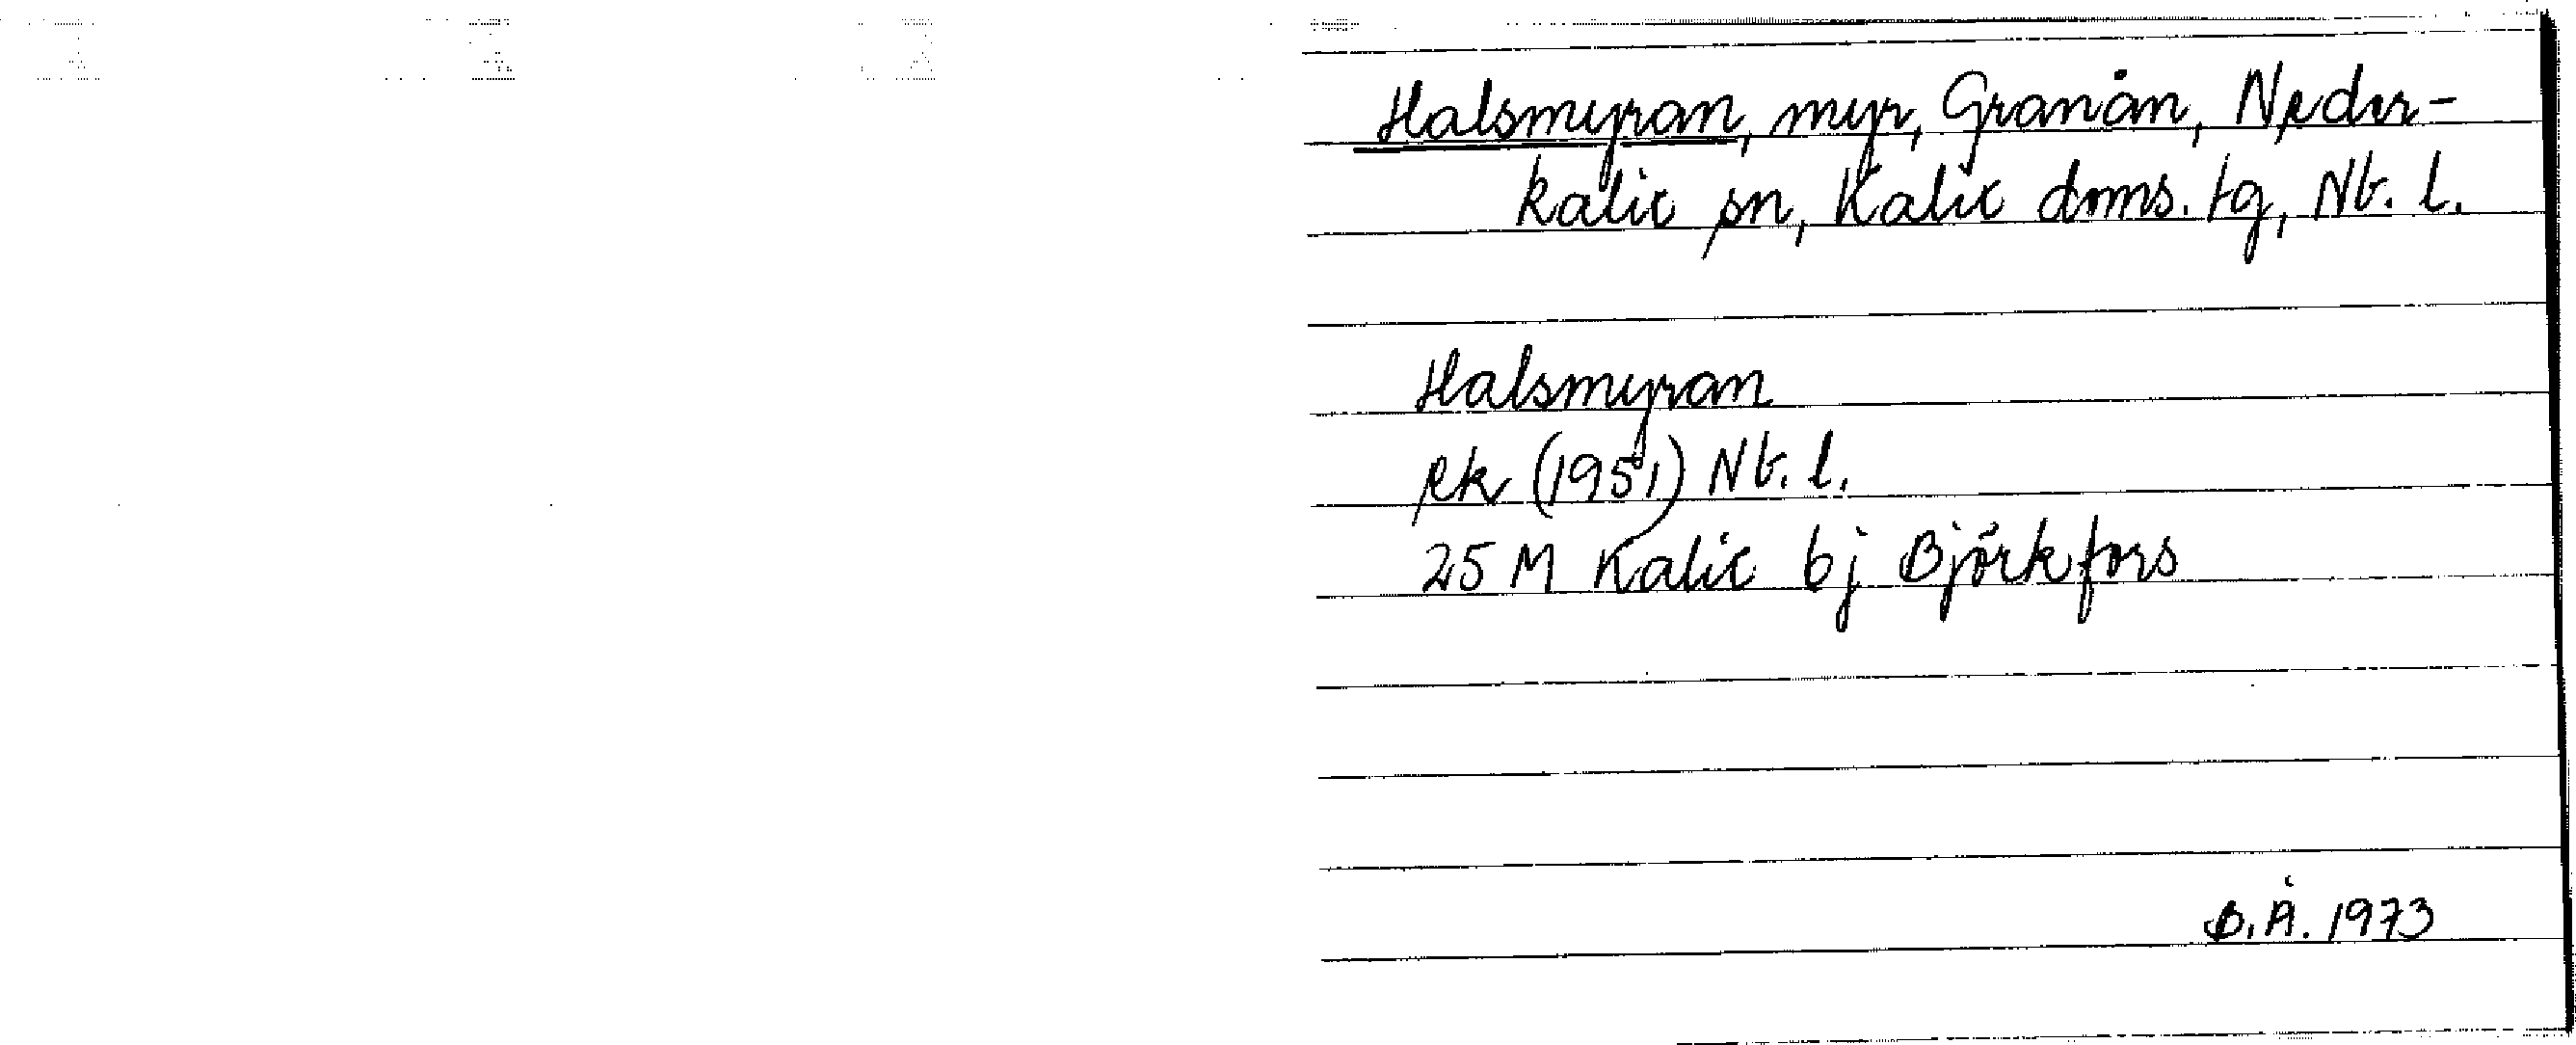 Halsmyran, myr, Granån, Neder-
kalix sn, Kalix doms. tg, Nb. l.
Halsmyran
ek (1951) Nb. l.
25 M Kalix bj Björkfors
B.Å. 1973